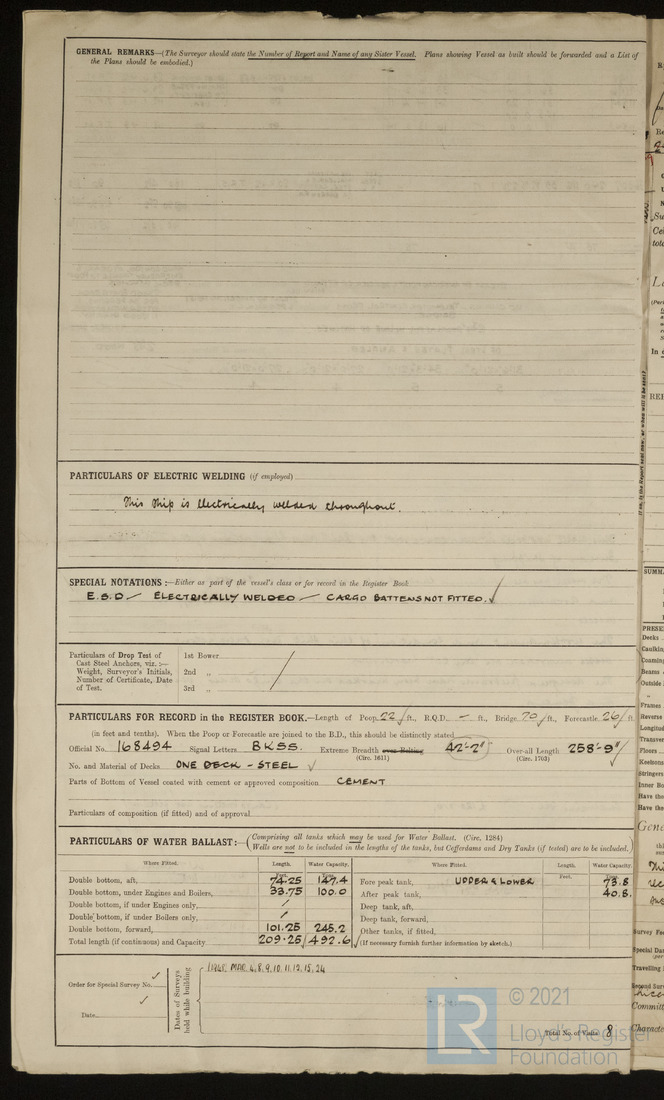 GENERAL REMARKS—(The Surveyor should state the Number of Report and Name of any Sister Vessel. Plans showing Vessel as built should be forwarded and a List of
the Plans should be embodied.)
PARTICULARS OF ELECTRIC WELDING (if employed)
This ship is electrically welded throughout.
SPECIAL NOTATIONS :—Either as part of the vessel's class or for record in the Register Book
E.S.D — ELECTRICALLY WELDED — CARGO BATTENS NOT FITTED. ✓
Particulars of Drop Test of
Cast Steel Anchors, viz. :—
Weight, Surveyor's Initials,
Number of Certificate, Date
of Test.
1st Bower
2nd „
3rd „
PARTICULARS FOR RECORD in the REGISTER BOOK.—Length of Poop 22 ft., R.Q.D. — ft., Bridge 70 ft., Forecastle 26 ft.
(in feet and tenths). When the Poop or Forecastle are joined to the B.D., this should be distinctly stated
Official No. 168494 Signal Letters BKSS. Extreme Breadth over Belting 42'-2" Over-all Length 258'-9"
(Circ. 1611) (Circ. 1703)
No. and Material of Decks ONE DECK - STEEL ✓
Parts of Bottom of Vessel coated with cement or approved composition CEMENT
Particulars of composition (if fitted) and of approval
PARTICULARS OF WATER BALLAST:—(Comprising all tanks which may be used for Water Ballast. (Circ. 1284)
Wells are not to be included in the lengths of the tanks, but Cofferdams and Dry Tanks (if tested) are to be included.)
Where Fitted. Length. Water Capacity. Where Fitted. Length. Water Capacity.
Feet. Tons. Feet. Tons.
Double bottom, aft, 74.25 147.4 Fore peak tank, UPPER & LOWER 73.8
Double bottom, under Engines and Boilers, 33.75 100.0 After peak tank, 40.8
Double bottom, if under Engines only, Deep tank, aft,
Double bottom, if under Boilers only, Deep tank, forward,
Double bottom, forward, 101.25 245.2 Other tanks, if fitted,
Total length (if continuous) and Capacity 209.25 492.6 (If necessary furnish further information by sketch.)
Order for Special Survey No. ✓
Date ✓
Dates of Surveys
held while building
MAR. 4, 8, 9, 10, 11, 12, 15, 24
Total No. of Visits 8
LR
© 2021
Lloyd's Register
Foundation